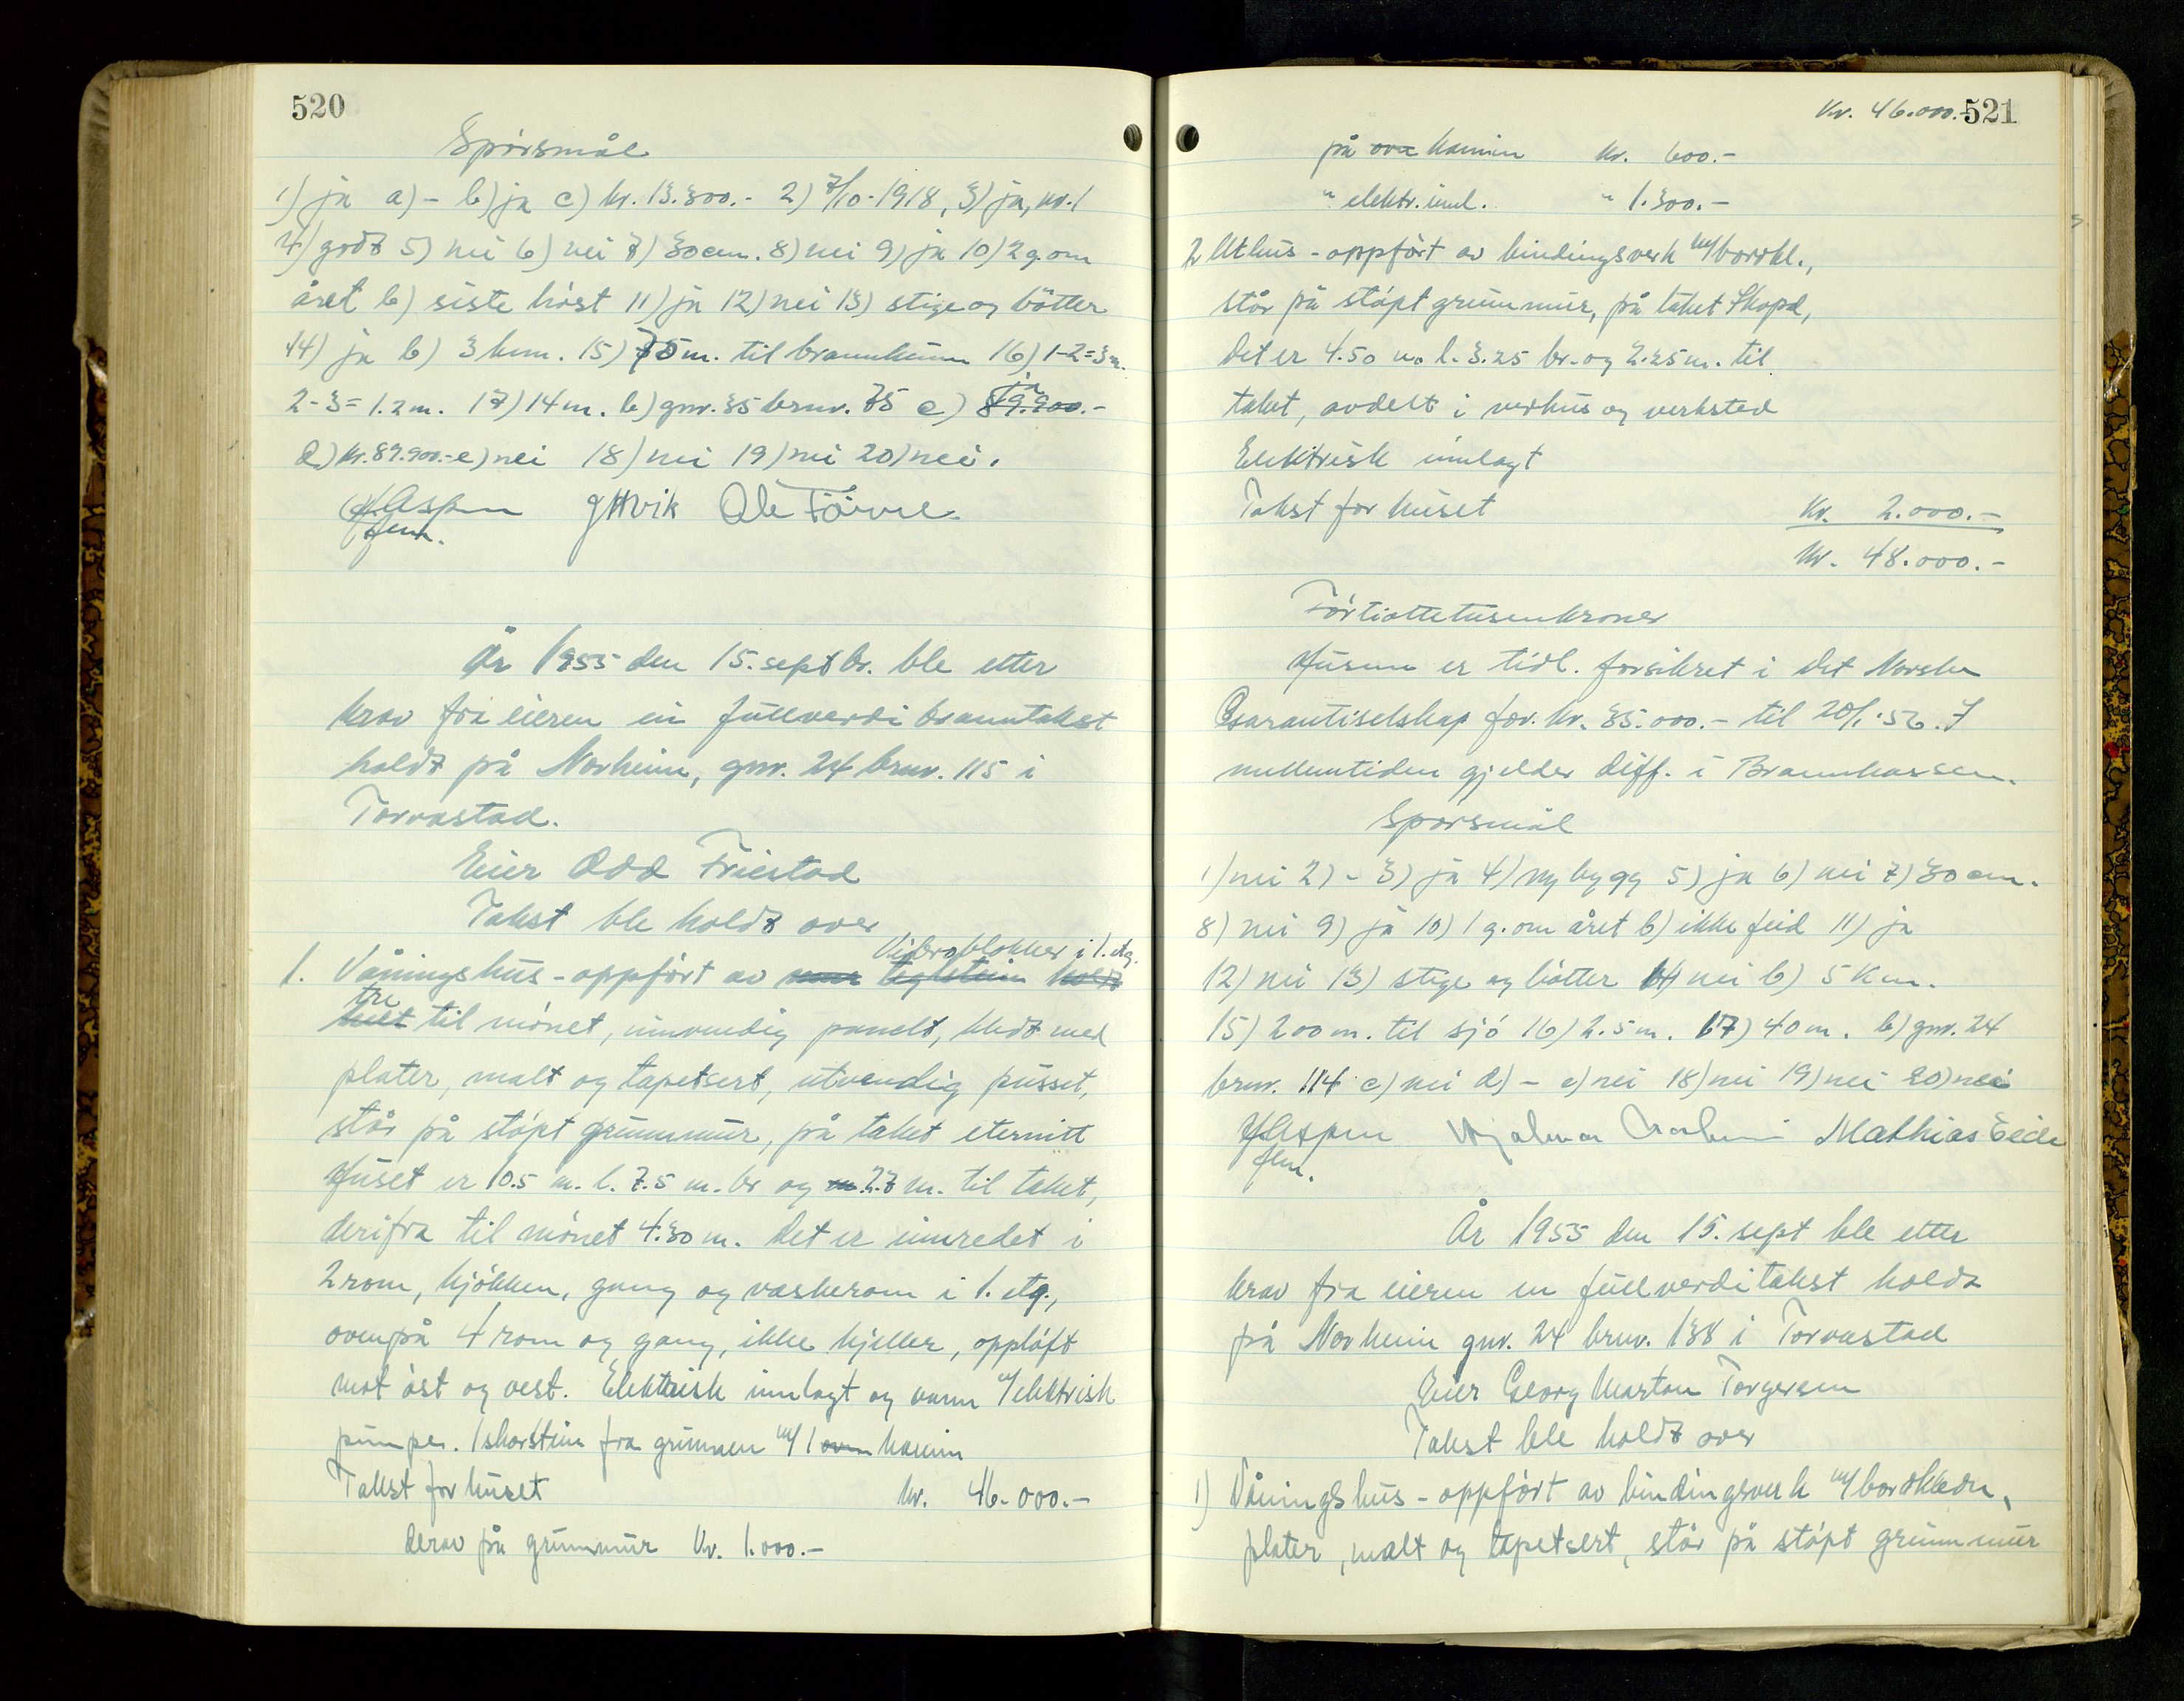 520
Spørsmål
1) ja a) - b) ja c) kr. 13.300.- 2) 7/10-1918, 3) ja, kr. 1
4) godt 5) nei 6) nei 7) 30 cm. 8) nei 9) ja 10) 2 g. om
året b) siste høst 11) ja 12) nei 13) stige og bøtter
14) ja b) 3 km. 15) 75 m. til brannkum 16) 1-2=3 m.
2-3= 1.2 m. 17) 14 m. b) gnr. 35 brnr. 75 c) ja
d) kr. 89.900.- e) nei 18) nei 19) nei 20) nei.
H. Aspen JHvik Ole Førre
fem.
År 1955 den 15. septbr. ble etter
krav fra eieren en fullverdi branntakst
holdt på Norheim, gnr. 24 brnr. 115 i
Torvastad.
Eier Odd Friestad
Takst ble holdt over
Vibroblokker i 1. etg.
1. Våningshus - oppført av mur teglstein
tre
til mønet, innvendig panelt, kledt med
plater, malt og tapetsert, utvendig pusset,
står på støpt grunnmur, på taket eternitt
Huset er 10.5 m. l. 7.5 m. br og 2.7 m. til taket,
derifra til mønet 4.30 m. Det er innredet i
2 rom, kjøkken, gang og vaskerom i 1. etg.,
ovenpå 4 rom og gang, ikke kjeller, oppløft
mot øst og vest. Elektrisk innlagt og vann m/ elektrisk
pumpe. 1 skorstein fra grunnen m/ 1 ovn kamin
Takst for huset kr. 46.000.-
derav på grunnmur kr. 1.000.-
Kr. 46.000.- 521
på ovn kamin kr. 600.-
" elektr. innl. " 1.300.-
2 Uthus - oppført av bindingsverk m/ bordkl.,
står på støpt grunnmur, på taket skopd,
Det er 4.50 m. l. 3.25 br. og 2.25 m. til
taket, avdelt i vedhus og verksted
Elektrisk innlagt
Takst for huset kr. 2.000.-
kr. 48.000.-
Førtiottetusenkroner
Husene er tidl. forsikret i Det Norske
Garantiselskap for kr. 35.000.- til 20/1.-56. I
mellemtiden gjelder diff. i Brannkassen.
Spørsmål
1) nei 2) - 3) ja 4) nybygg 5) ja 6) nei 7) 30 cm.
8) nei 9) ja 10) 1 g. om året b) ikke feid 11) ja
12) nei 13) stige og bøtter 14) nei b) 5 km.
15) 200 m. til sjø 16) 2.5 m. 17) 40 m. b) gnr. 24
brnr. 114 c) nei d) - e) nei 18) nei 19) nei 20) nei
H. Aspen Hjalmar Mathias Eide
fem.
År 1955 den 15. sept ble etter
krav fra eieren en fullverditakst holdt
på Norheim gnr. 24 brnr. 138 i Torvastad
Eier Georg Marton Torgersen
Takst ble holdt over
1) Våningshus - oppført av bindingsverk m/ bordkledn.,
plater, malt og tapetsert, står på støpt grunnmur